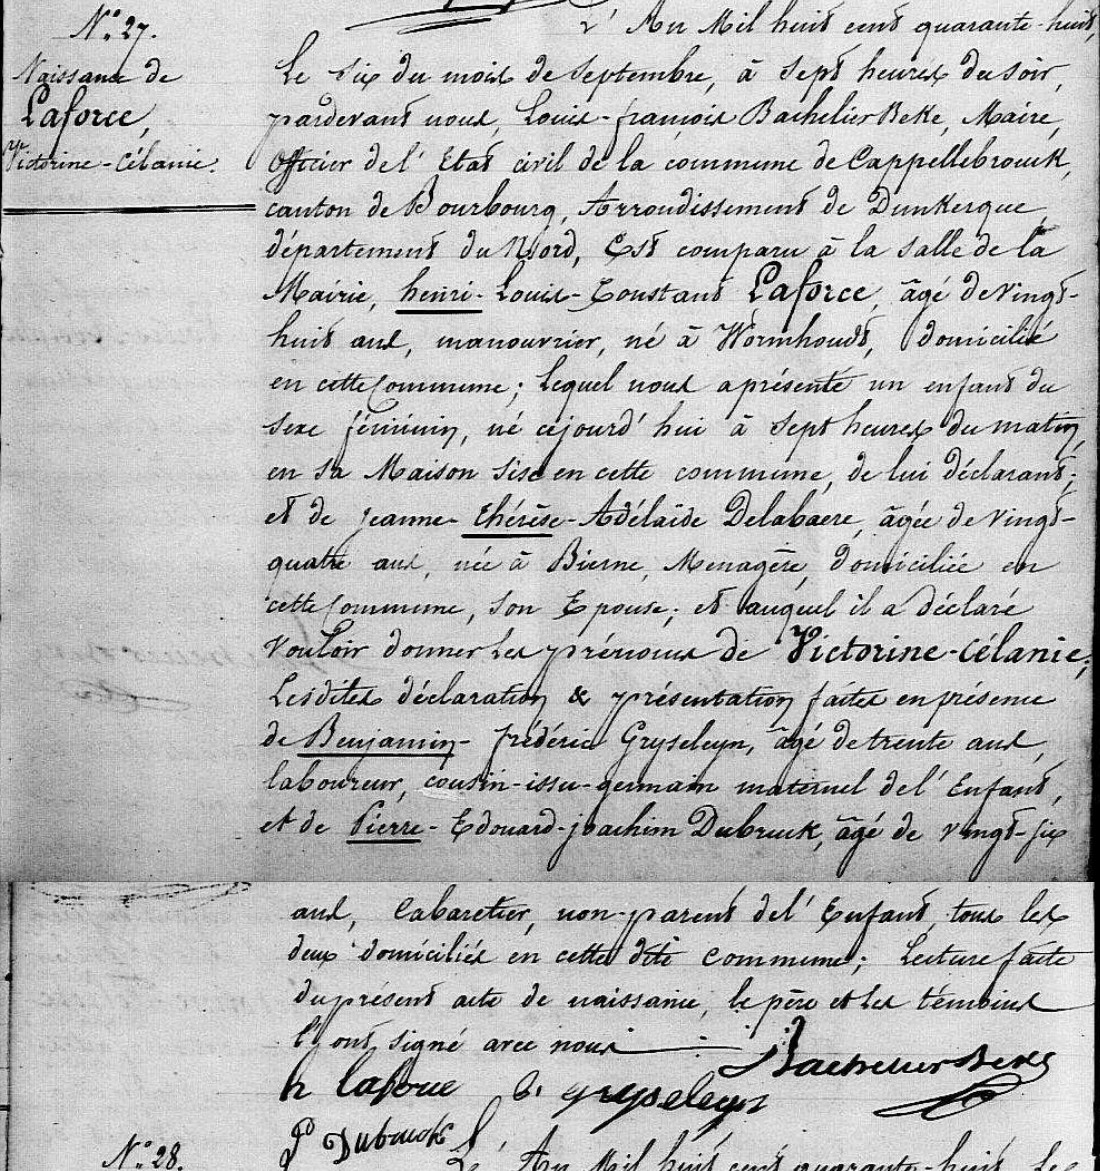 N.° 27.
Naissance de
Laforce,
Victorine-Célanie.
L'An Mil huit cent quarante-huit,
Le six du mois de Septembre, à sept heures du soir,
pardevant nous, Louis-françois Bachelier Beke, Maire,
Officier de l'Etat civil de la commune de Cappellebrouck,
canton de Bourbourg, Arrondissement de Dunkerque,
département du Nord, Est comparu à la salle de la
Mairie, henri-Louis-Constant Laforce, âgé de vingt-
huit ans, manouvrier, né à Wormhoudt, domicilié
en cette Commune; Lequel nous a présenté un enfant du
Sexe féminin, né cejourd'hui à sept heures du matin,
en sa Maison sise en cette commune, de lui déclarant;
et de jeanne-thérèse-Adélaïde Delabaere, âgée de vingt-
quatre ans, née à Bierne, Menagère, domiciliée en
cette Commune, son Epouse; et auquel il a déclaré
vouloir donner les prénoms de Victorine-Célanie;
Lesdites déclaration & présentation faites en présence
de Benjamin-frédéric Gryseleyn, âgé de trente ans,
laboureur, cousin-issu-germain maternel de l'Enfant,
et de Pierre-Edouard-joachim Dubruck, âgé de vingt-six
ans, Cabaretier, non-parent de l'Enfant, tous les
deux domiciliés en cette dite commune; Lecture faite
du présent acte de naissance, le père et les témoins
l'ont signé avec nous
Bachelier Beke
h laforce B. gryseleyn
P Dubruck
N.° 28. L'An Mil huit cent quarante-huit, Le